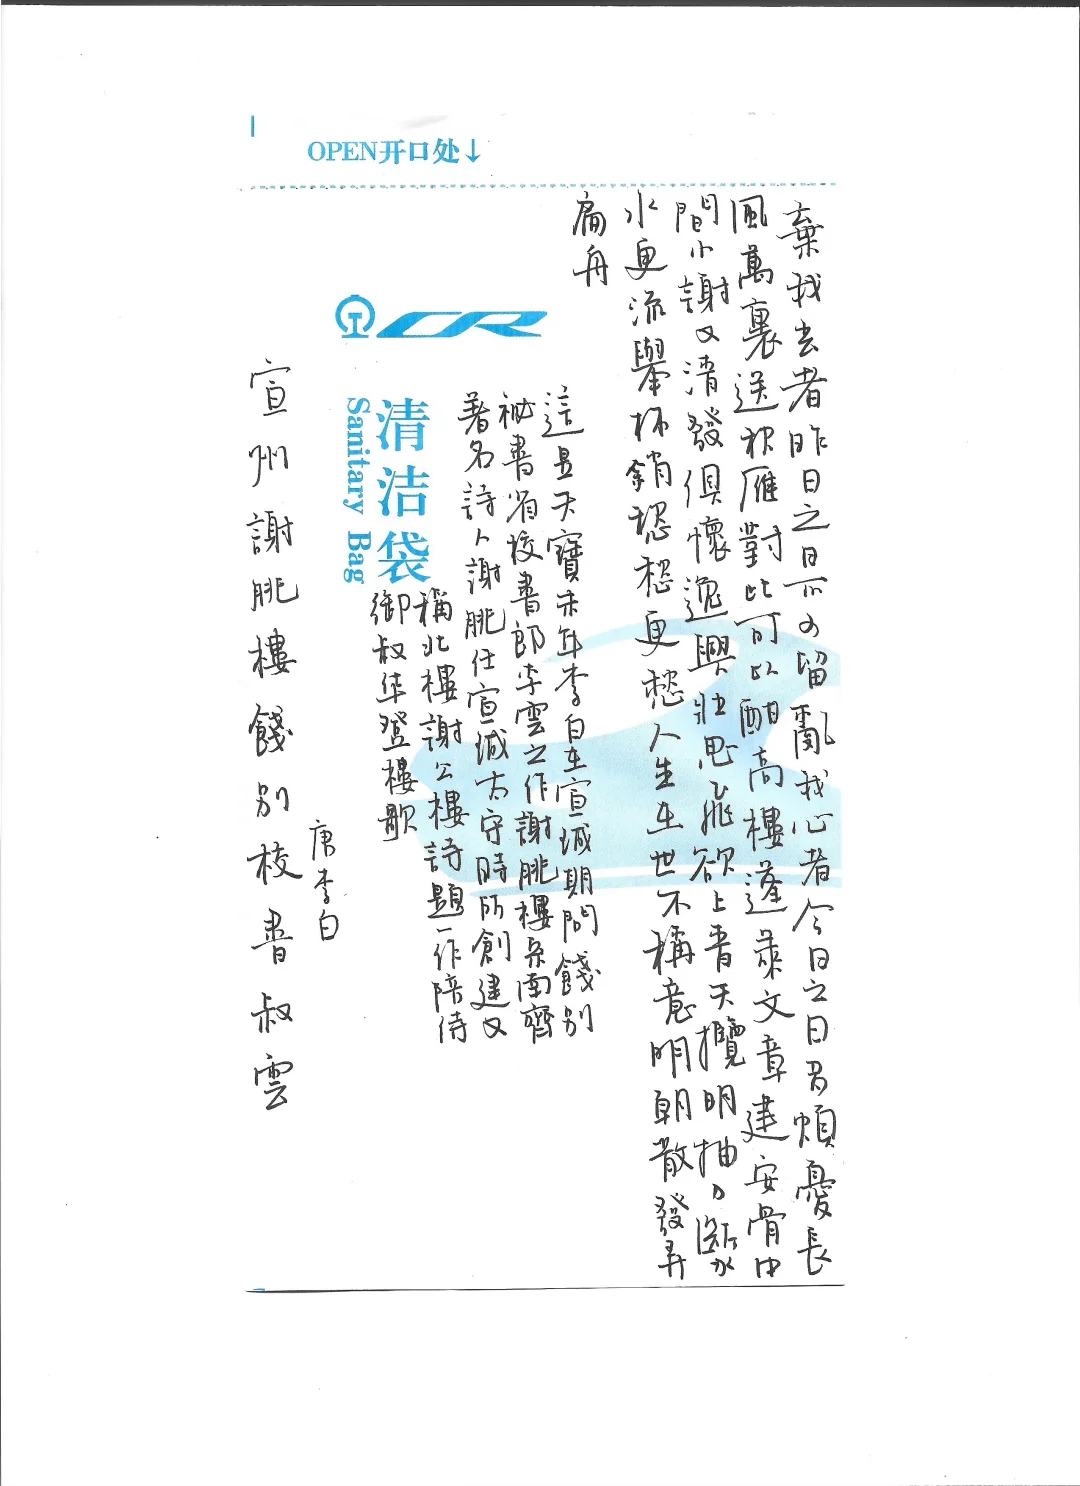 OPEN开口处↓
棄我去者昨日之日不可留亂我心者今日之日多煩憂長
風萬裏送秋雁對此可以酣高樓蓬萊文章建安骨中
間小謝又清發俱懷逸興壯思飛欲上青天攬明抽刀斷水
水更流舉杯銷愁愁更愁人生在世不稱意明朝散發弄
扁舟
CR
清洁袋
Sanitary Bag
這是天寶末年李白在宣城期間餞別
秘書省校書郎李雲之作謝朓樓系南齊
著名詩人謝朓任宣城太守時所創建又
稱北樓謝公樓詩題一作陪侍
御叔華登樓歌
唐李白
宣州謝朓樓餞別校書叔雲